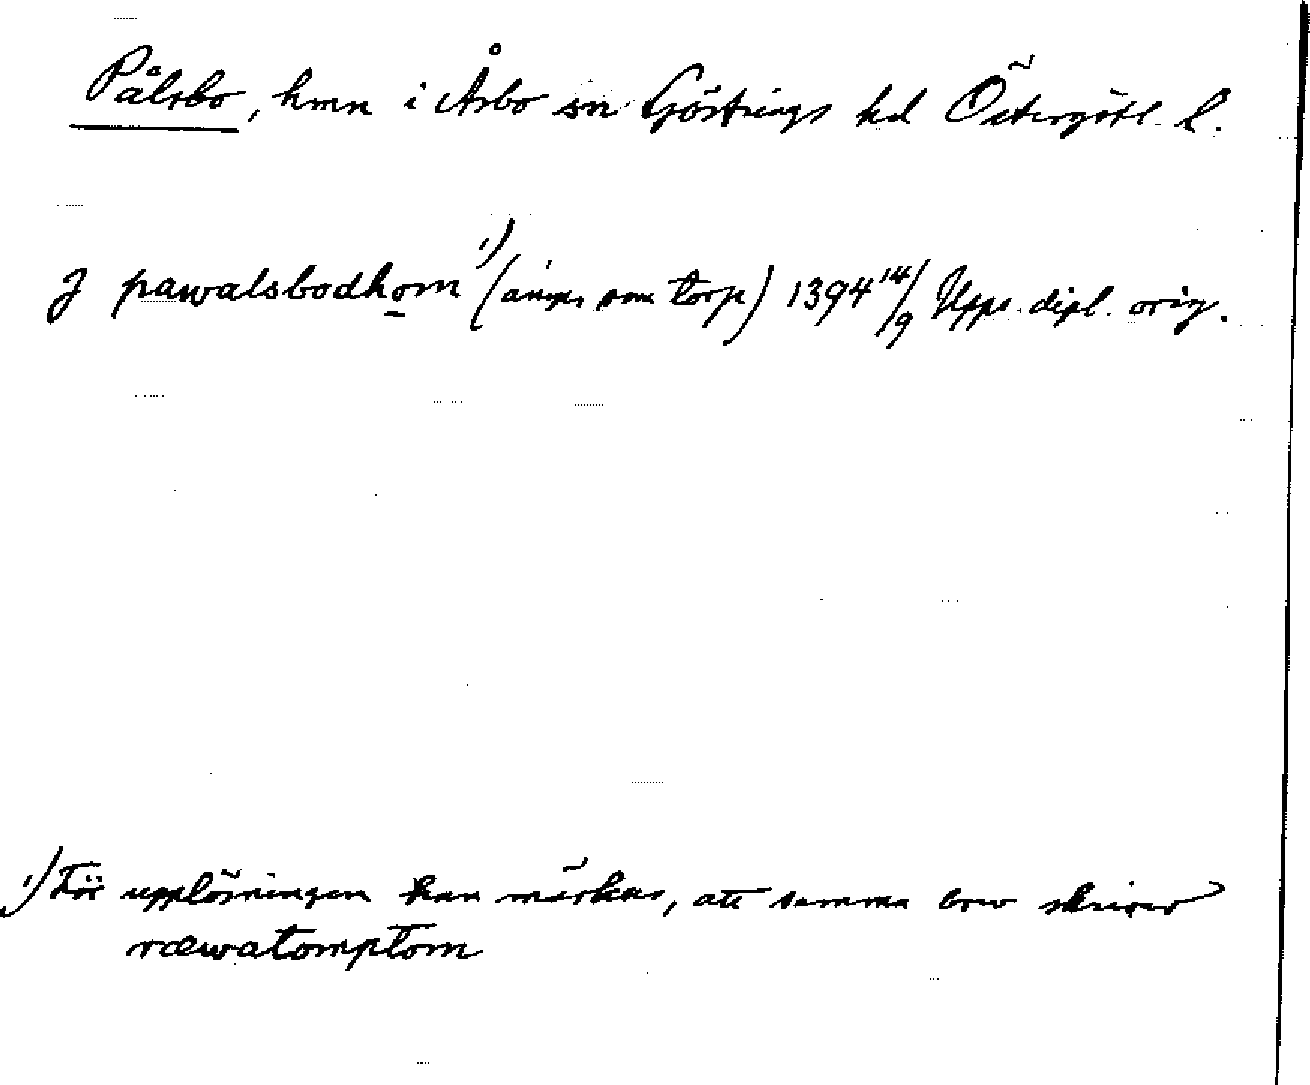 Pålsbo, hmn i Åsbo sn Göstrings hd Östergötl. l.
J pawalsbodhom ¹) (anges som torp) 1394 14/9 Upps. dipl. orig.
¹) För upplösningen kan märkas, att samma brev skriver
ræwatomptom